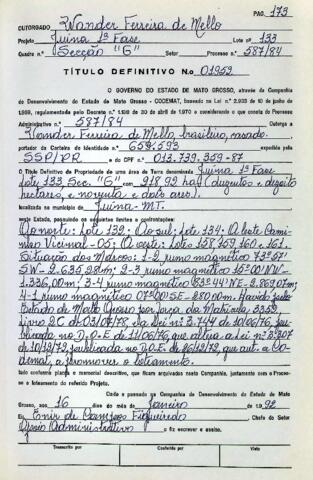 PAG. 173
OUTORGADO Wander Ferreira de Mello
Projeto Juina 1ª Fase Lote nº 133
Quadra n.º Secção "G" Setor Processo n.º 587/84
TÍTULO DEFINITIVO N.o 01952
O GOVERNO DO ESTADO DE MATO GROSSO, através da Companhia
de Desenvolvimento do Estado de Mato Grosso - CODEMAT, com base na Lei n.º 2.933 de 10 de junho de
1969, regulamentada pelo Decreto n.º 1.138 de 30 de abril de 1970 e considerando o que consta do Processo
Administrativo n.º 587/84 Outorga a
Wander Ferreira de Mello, brasileiro, casado
portador da Carteira de Identidade n.º 659.593 expedida pela
SSP/PR e do CPF n.º 013.739.359-87
O Título Definitivo de Propriedade de uma área de Terra denominada Juina 1ª Fase
Lote 133, Sec. "G" com 218,92 ha (duzentos e dezoito
hectares, e noventa e dois ares).
localizada no município de Juina-MT.
neste Estado, possuindo os seguintes limites e confrontações:
Ao norte: Lote 132; Ao sul: Lote 134; A leste Cami-
nho Vicinal-05; A oeste: Lotes 158, 159, 160 e 161.
Situação dos Marcos: 1-2 rumo magnético 73º57'
SW-2.635,28m; 2-3 rumo magnético 15º00'NW-
1.336,00m; 3-4 rumo magnético 83º44'NE-2.869,07m;
4-1 rumo magnético 07º00'SE-280,00m. Havido pelo
Estado de Mato Grosso por força da Matrícula 3359,
livro 2C de 03/07/78, da Lei nº 3.744 de 10/06/76, pu-
blicada no D.O.E. de 11/06/76, que altera a lei nº 3.307
de 10/12/72, publicada no D.O.E. de 26/12/72, que aut. a Co-
demat, a promover o loteamento.
tudo conforme planta e memorial descritivo, que ficam arquivados nesta Companhia, juntamente com o Proces-
so e loteamento do referido Projeto.
Dada e passada na Companhia de Desenvolvimento do Estado de Mato
Grosso, aos 16 dias do mês de Janeiro de 1.992
Eu, Enir de Campos Figueiredo Chefe do Setor
Apoio Administrativo o fiz escrever e assino.
Transcrito por Conferido por Visto